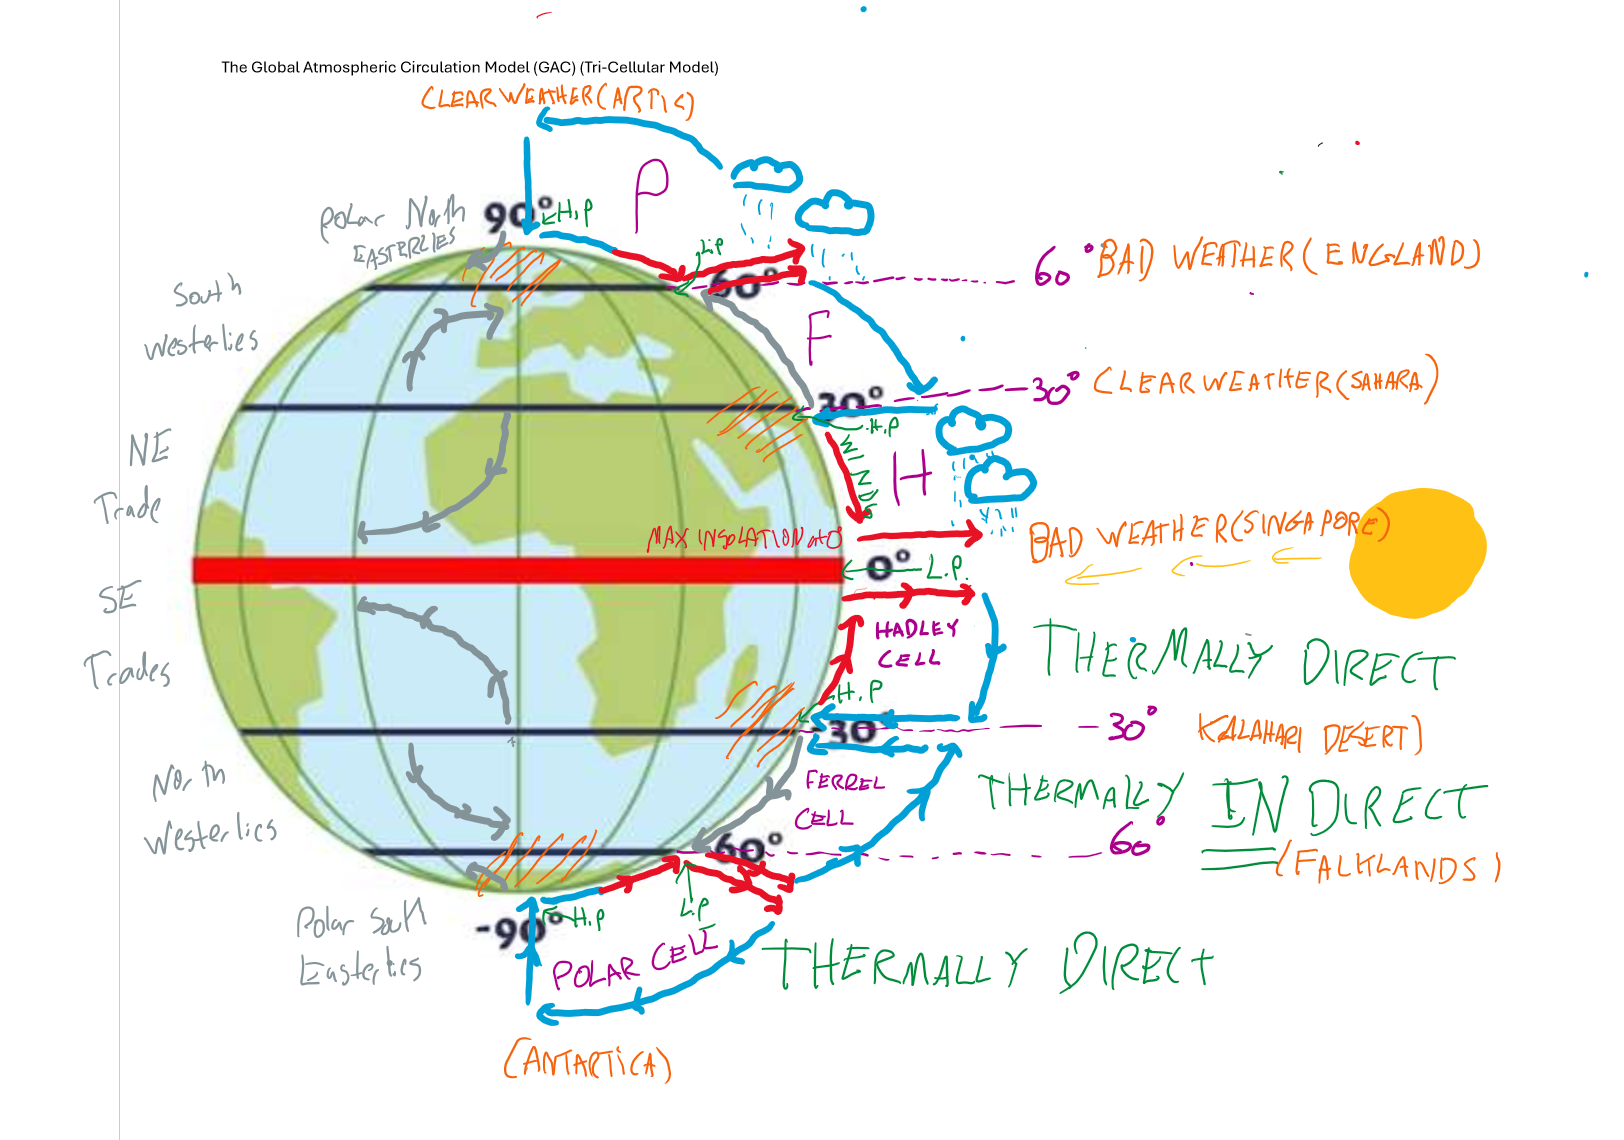 The Global Atmospheric Circulation Model (GAC) (Tri-Cellular Model)
CLEAR WEATHER (ARTIC)
P
POLAR North
EASTERLIES
90°
H.P
L.P
60°
60° BAD WEATHER (ENGLAND)
South
Westerlies
F
30°
30° CLEAR WEATHER (SAHARA)
H.P
WINDS
H
NE
Trade
MAX INSOLATION at 0
BAD WEATHER (SINGAPORE)
0°
L.P.
SE
Trades
HADLEY
CELL
THERMALLY DIRECT
H.P
-30°
-30° KALAHARI DESERT)
FERREL
CELL
THERMALLY INDIRECT
North
Westerlies
-60°
60°
(FALKLANDS)
-90°
H.P
L.P
Polar South
Easterlies
POLAR CELL
THERMALLY DIRECT
(ANTARTICA)